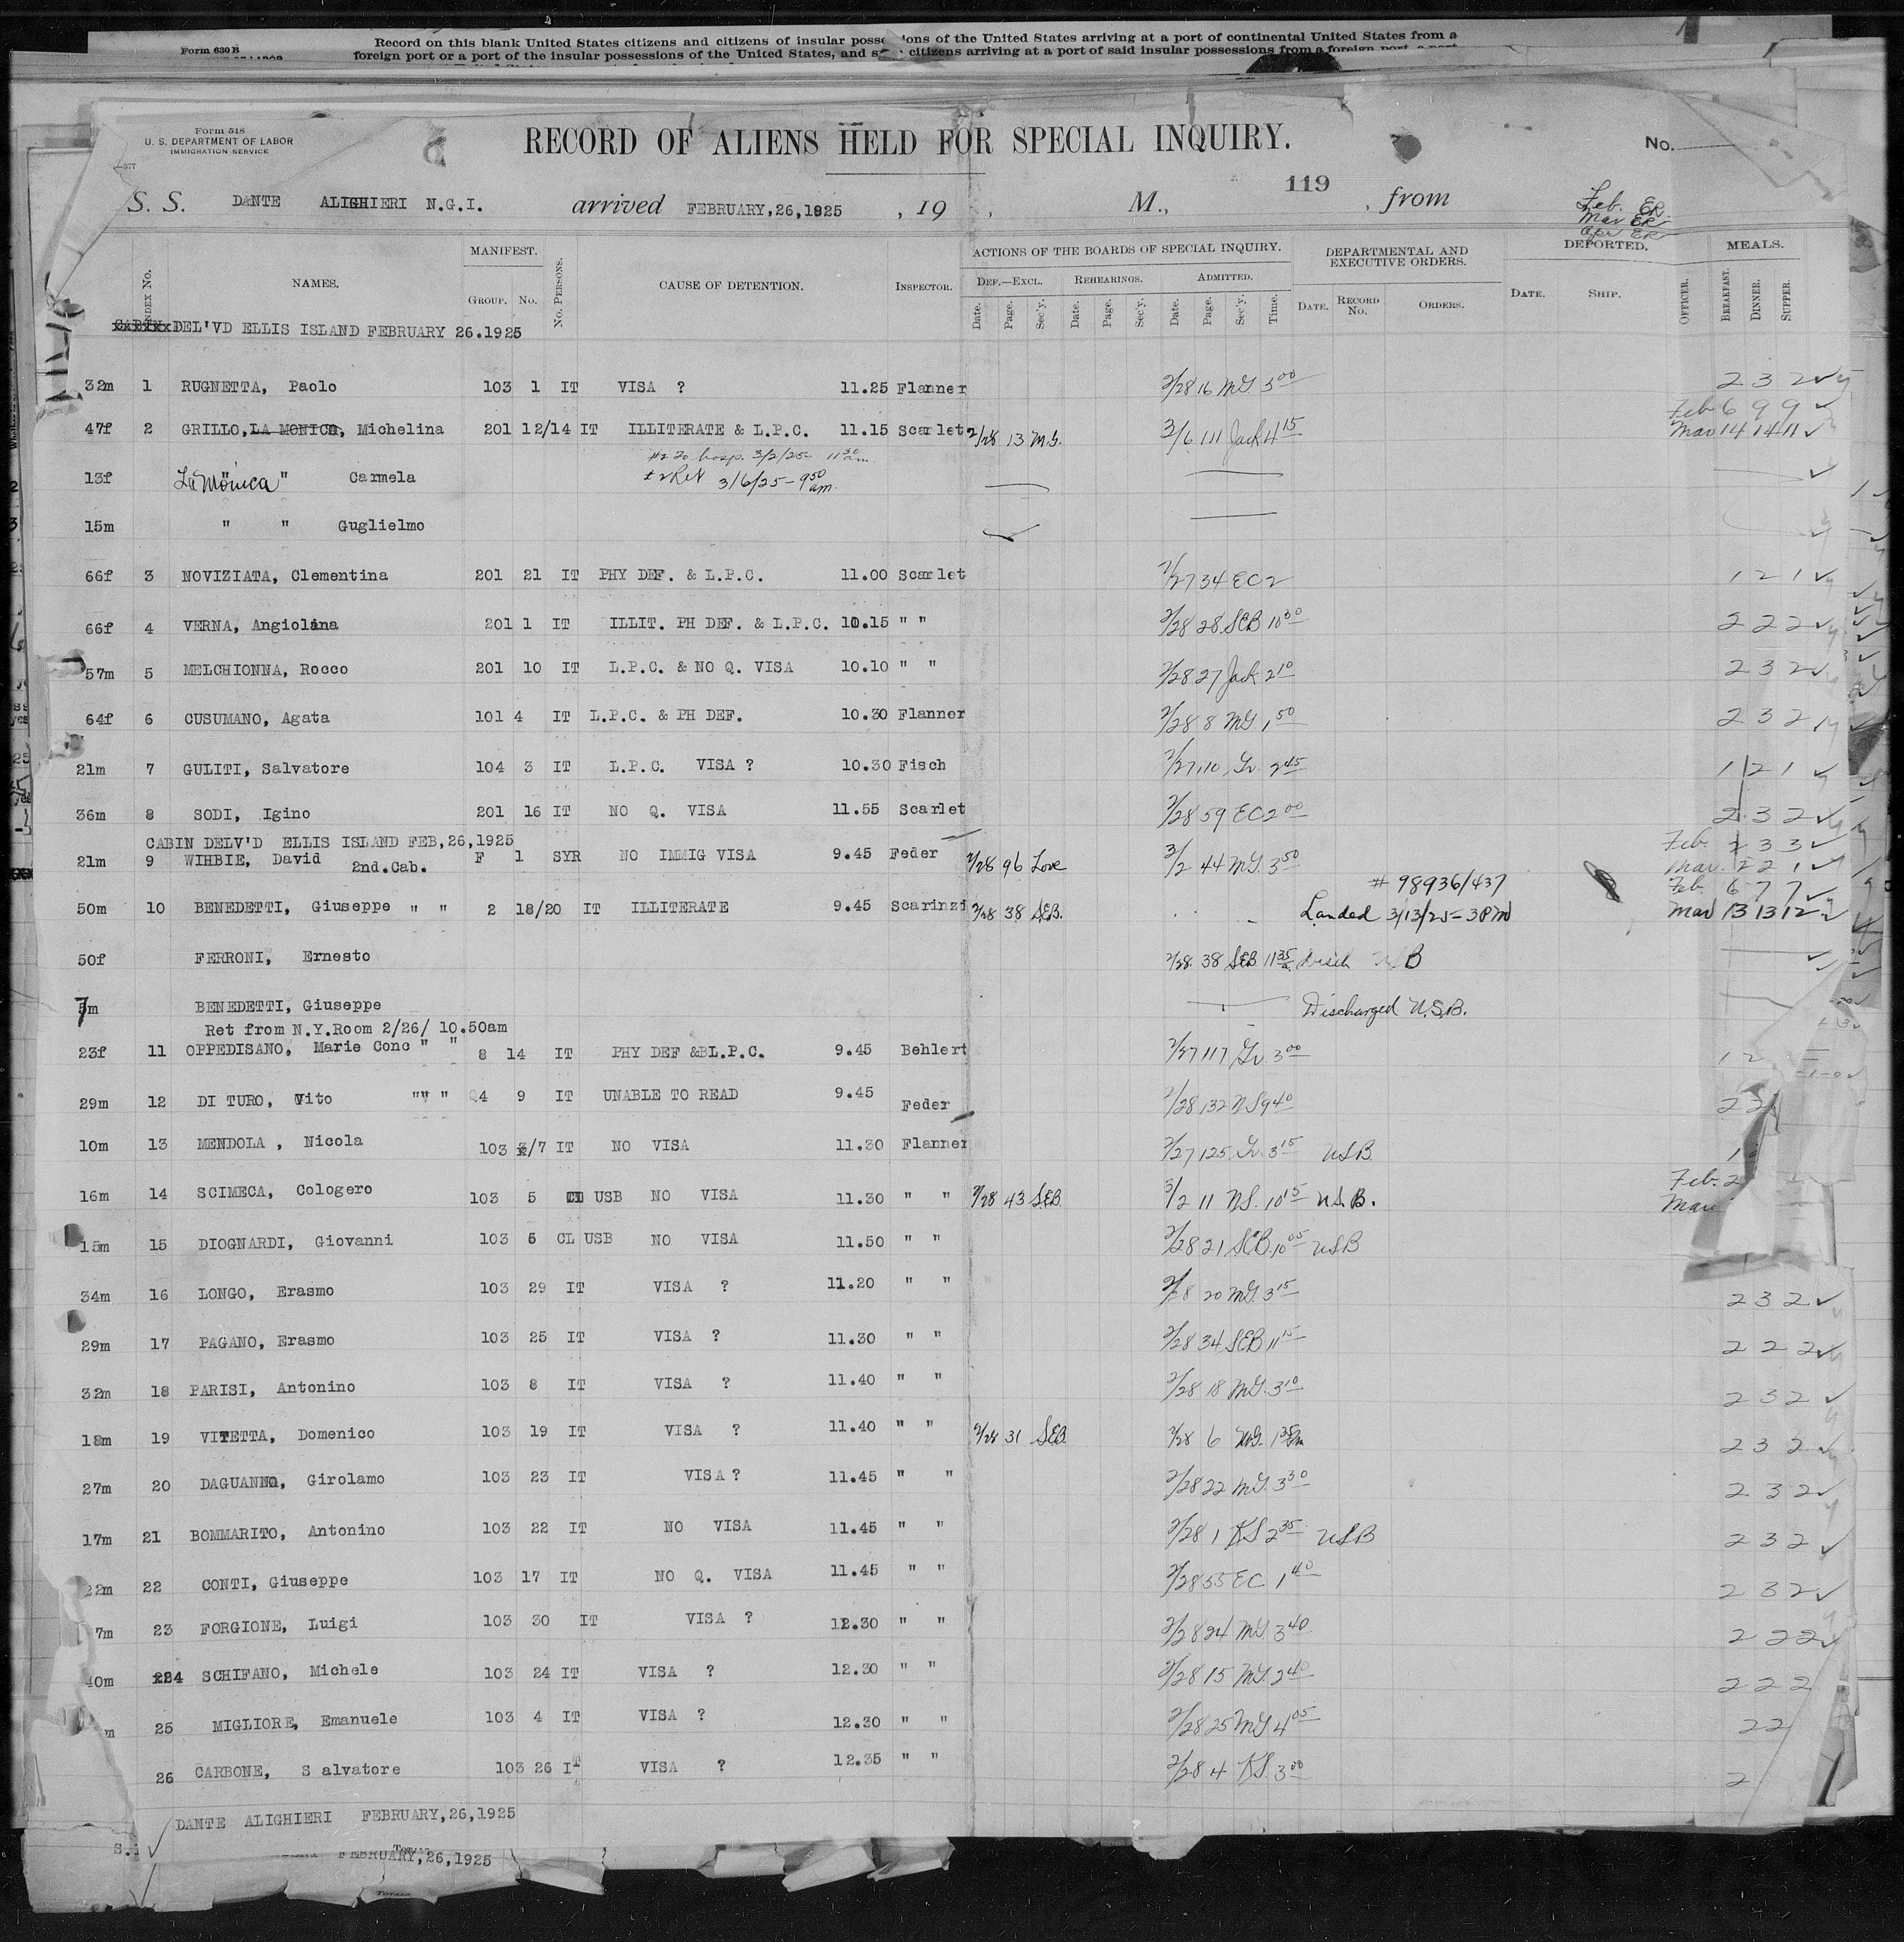 Form 630 B
Record on this blank United States citizens and citizens of insular possessions of the United States arriving at a port of continental United States from a
foreign port or a port of the insular possessions of the United States, and citizens arriving at a port of said insular possessions from a foreign port
Form 518
U. S. DEPARTMENT OF LABOR
IMMIGRATION SERVICE
RECORD OF ALIENS HELD FOR SPECIAL INQUIRY.
No.
119
S. S. DANTE ALIGHIERI N.G.I. arrived FEBRUARY,26,1925 , 19 , M., , from
Feb. ER.
Mar ER
Apr ER
Index No. NAMES. MANIFEST. Group. No. No. Persons. CAUSE OF DETENTION. Inspector. ACTIONS OF THE BOARDS OF SPECIAL INQUIRY. DEPARTMENTAL AND EXECUTIVE ORDERS. DEPORTED. MEALS.
Def.—Excl. Rehearings. Admitted.
Date. Page. Sec'y. Date. Page. Sec'y. Date. Page. Sec'y. Time. Date. Record No. Orders. Date. Ship. Officer. Breakfast. Dinner. Supper.
DEL'VD ELLIS ISLAND FEBRUARY 26.1925
32m 1 RUGNETTA, Paolo 103 1 IT VISA ? 11.25 Flanner 2/28 16 MG 3 00 2 3 2
Feb 6 9 9
47f 2 GRILLO, LA MONICA, Michelina 201 12/14 IT ILLITERATE & L.P.C. 11.15 Scarlet 2/28 13 M.G. 3/6 111 Jack 4 15 Mar 14 14 11
#2 To hosp. 3/2/25 11 30 am.
13f La Monica " Carmela 3/6/25 - 9 50 am.
15m " " Guglielmo
66f 3 NOVIZIATA, Clementina 201 21 IT PHY DEF. & L.P.C. 11.00 Scarlet 2/27 34 EC 2 1 2 1
66f 4 VERNA, Angiolina 201 1 IT ILLIT. PH DEF. & L.P.C. 10.15 " " 2/28 28 SEB 10 30 2 2 2
57m 5 MELCHIONNA, Rocco 201 10 IT L.P.C. & NO Q. VISA 10.10 " " 2/28 27 Jack 2 10 2 3 2
64f 6 CUSUMANO, Agata 101 4 IT L.P.C. & PH DEF. 10.30 Flanner 2/28 8 MG 1 50 2 3 2
21m 7 GULITI, Salvatore 104 3 IT L.P.C. VISA ? 10.30 Fisch 2/27 110 Gr. 2 45 1 2 1
36m 8 SODI, Igino 201 16 IT NO Q. VISA 11.55 Scarlet 2/28 59 EC 2 00 2 3 2
CABIN DELV'D ELLIS ISLAND FEB,26,1925 Feb. 2 3 3
21m 9 WIHBIE, David 2nd.Cab. F 1 SYR NO IMMIG VISA 9.45 Feder 2/28 96 Love 3/2 44 MG 3 50 Mar. 2 2 1
# 98936/437 Feb. 6 7 7
50m 10 BENEDETTI, Giuseppe " " 2 18/20 IT ILLITERATE 9.45 Scarinzi 2/28 38 SEB. Landed 3/13/25 - 3 PM Mar 13 13 12
50f FERRONI, Ernesto 2/28 38 SEB 11 35 a. Disch B
7m BENEDETTI, Giuseppe Discharged U.S.B.
Ret from N.Y.Room 2/26/ 10.50am
23f 11 OPPEDISANO, Marie Conc " " 8 14 IT PHY DEF &BL.P.C. 9.45 Behlert 2/27 117 Gr. 3 00 1 2
29m 12 DI TURO, Vito " " " 4 9 IT UNABLE TO READ 9.45 Feder 2/28 132 NS 9 40 2 2
10m 13 MENDOLA , Nicola 103 /7 IT NO VISA 11.30 Flanner 2/27 125 Gr. 3 15 USB 1
Feb. 2
16m 14 SCIMECA, Cologero 103 5 USB NO VISA 11.30 " " 2/28 43 SEB 3/2 11 NS. 10 15 U.S.B. Mar.
15m 15 DIOGNARDI, Giovanni 103 6 CL USB NO VISA 11.50 " " 2/28 21 SEB 10 05 USB
34m 16 LONGO, Erasmo 103 29 IT VISA ? 11.20 " " 2/28 20 MG. 3 15 2 3 2
29m 17 PAGANO, Erasmo 103 25 IT VISA ? 11.30 " " 2/28 34 SEB 11 15 2 2 2
32m 18 PARISI, Antonino 103 8 IT VISA ? 11.40 " " 2/28 18 MG. 3 10 2 3 2
18m 19 VITETTA, Domenico 103 19 IT VISA ? 11.40 " " 2/28 31 SEB 2/28 6 MG. 1 35 2 3 2
27m 20 DAGUANNO, Girolamo 103 23 IT VISA ? 11.45 " " 2/28 22 MG. 3 30 2 3 2
17m 21 BOMMARITO, Antonino 103 22 IT NO VISA 11.45 " " 2/28 1 KS 2 35 USB 2 3 2
22m 22 CONTI, Giuseppe 103 17 IT NO Q. VISA 11.45 " " 2/28 55 EC 1 40 2 3 2
7m 23 FORGIONE, Luigi 103 30 IT VISA ? 12.30 " " 2/28 24 MG 3 40 2 2 2
40m 24 SCHIFANO, Michele 103 24 IT VISA ? 12.30 " " 2/28 15 MG. 2 40 2 2 2
m 25 MIGLIORE, Emanuele 103 4 IT VISA ? 12.30 " " 2/28 25 MG 4 05 2 2
26 CARBONE, S alvatore 103 26 IT VISA ? 12.35 " " 2/28 4 KS. 3 00 2
DANTE ALIGHIERI FEBRUARY,26,1925
S. FEBRUARY,26,1925